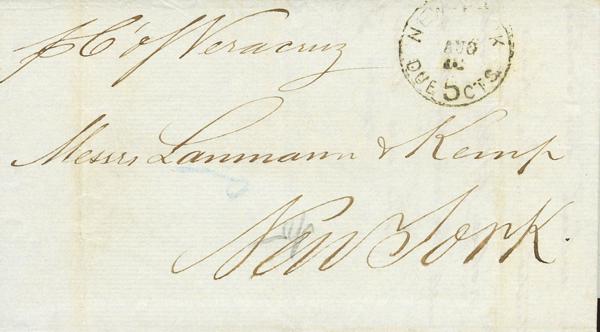 p C° of Veracruz
NEW YORK
AUG
DUE 5 CTS
Messrs Lanmann & Kemp
New York.